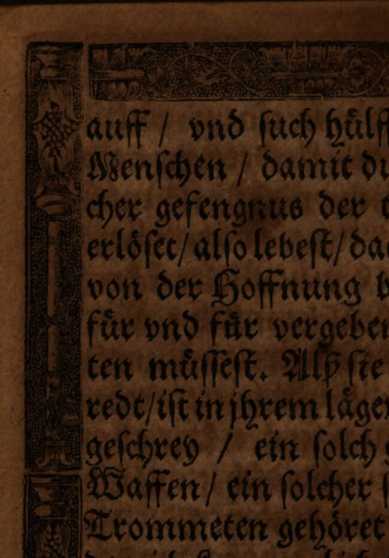 auff / vnd such hülff
Menschen / damit
cher gefengnus der
erlöset/ also lebest/
von der Hoffnung
für vnd für vergeben
ten müssest. Alß sie
redt/ ist in jhrem läger
geschrey / ein solch
Waffen/ ein solcher
Trommeten gehöret